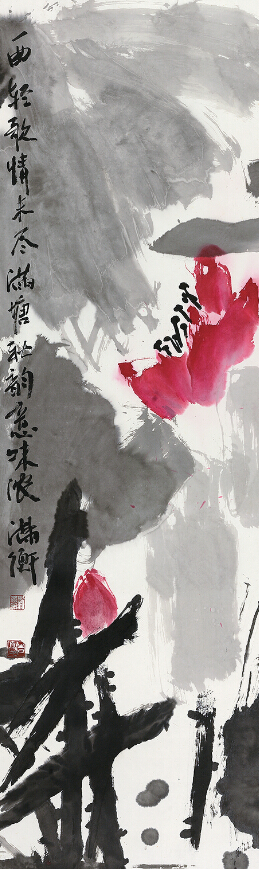 一曲轻歌情未尽满塘秋韵意味浓满衡